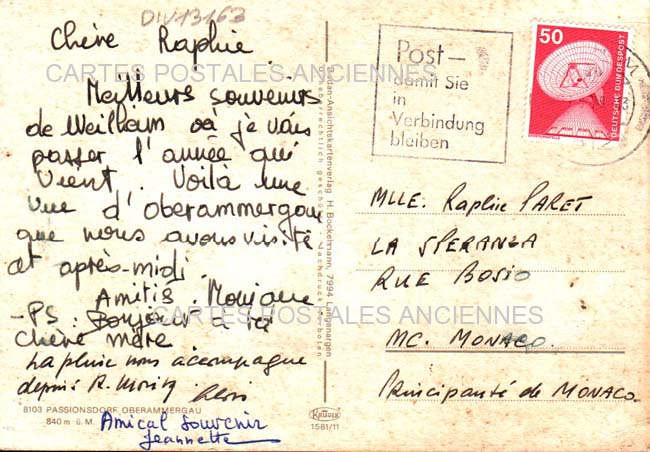 DIV13163
Chère Raphie,
Meilleurs souvenirs
de Weilheim où je vais
passer l'année qui
vient. Voilà une
vue d'Oberammergau
que nous avons visité
et après-midi.
Amitis. Monjane
-PS. Bonjour à ta
chère mère
La pluie nous accompagne
depuis
8103 PASSIONSDORF OBERAMMERGAU
840 m ü. M.
Amical Souvenir
Jeannette
Bodan-Ansichtskartenverlag H. Bockelmann, 7994 Langenargen
Urheberrechtlich geschützt Nachdruck verboten
KRÜGER
1581/11
Post-
damit Sie
in
Verbindung
bleiben
50
DEUTSCHE BUNDESPOST
MLLE. Raphie PARET
LA SPERANZA
RUE BOSIO
MC. MONACO.
Principauté de MONACO.
CARTES POSTALES ANCIENNES
CARTES POSTALES ANCIENNES